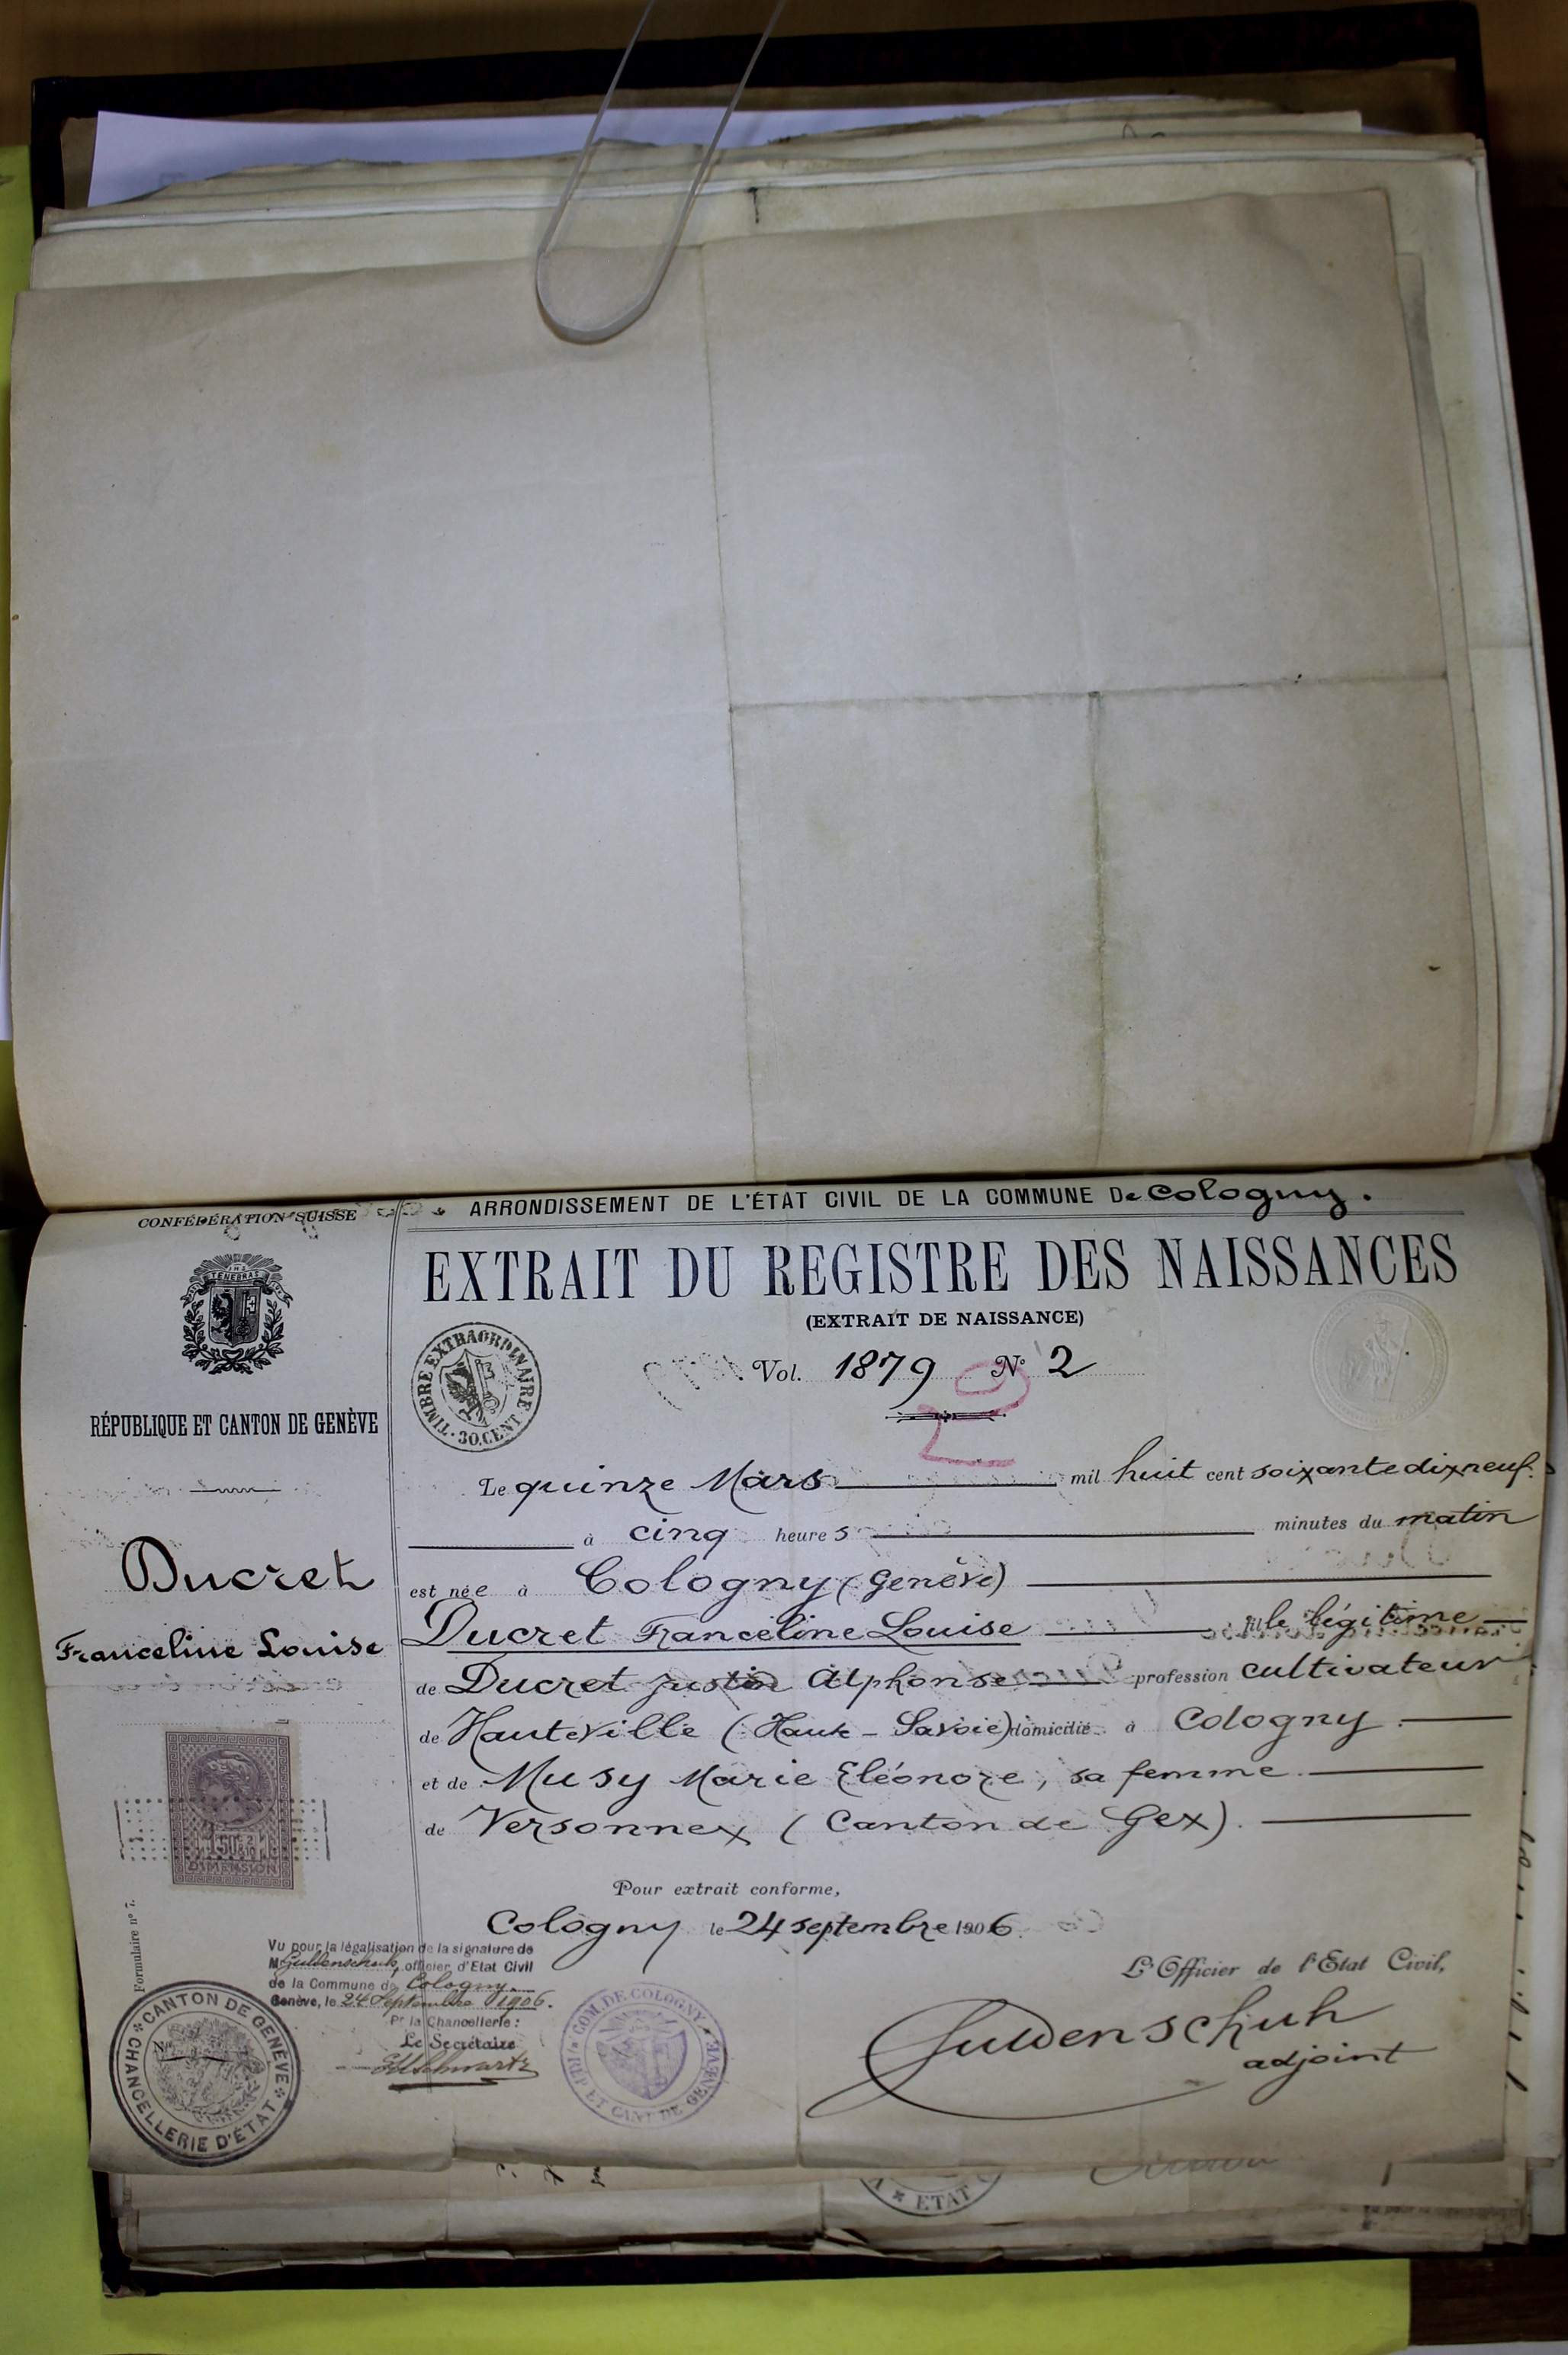 CONFÉDÉRATION SUISSE
TENEBRAS
RÉPUBLIQUE ET CANTON DE GENÈVE
Ducret
Franceline Louise
DIMENSION
Formulaire nº 7.
ARRONDISSEMENT DE L'ÉTAT CIVIL DE LA COMMUNE De Cologny.
EXTRAIT DU REGISTRE DES NAISSANCES
(EXTRAIT DE NAISSANCE)
TIMBRE EXTRAORDINAIRE · 30.CENT ·
Vol. 1879 Nº 2
Le quinze Mars mil huit cent soixante dix neuf.
à cinq heures minutes du matin
est née à Cologny (Genève)
Ducret Franceline Louise fille légitime
de Ducret Justin Alphonse profession cultivateur
de Hauteville (Haute-Savoie) domicilié à Cologny
et de Musy Marie Eléonore, sa femme
de Versonnex (Canton de Gex).
Pour extrait conforme,
Cologny le 24 septembre 1906
L'Officier de l'Etat Civil,
Guldenschuh
adjoint
Vu pour la légalisation de la signature de
M Guldenschuh, officier d'Etat Civil
de la Commune de Cologny
Genève, le 24 Septembre 1906.
Pr la Chancellerie :
Le Secrétaire
CANTON DE GENÈVE
CHANCELLERIE D'ÉTAT
COM. DE COLOGNY
RÉP. ET CANT. DE GENÈVE
ETAT